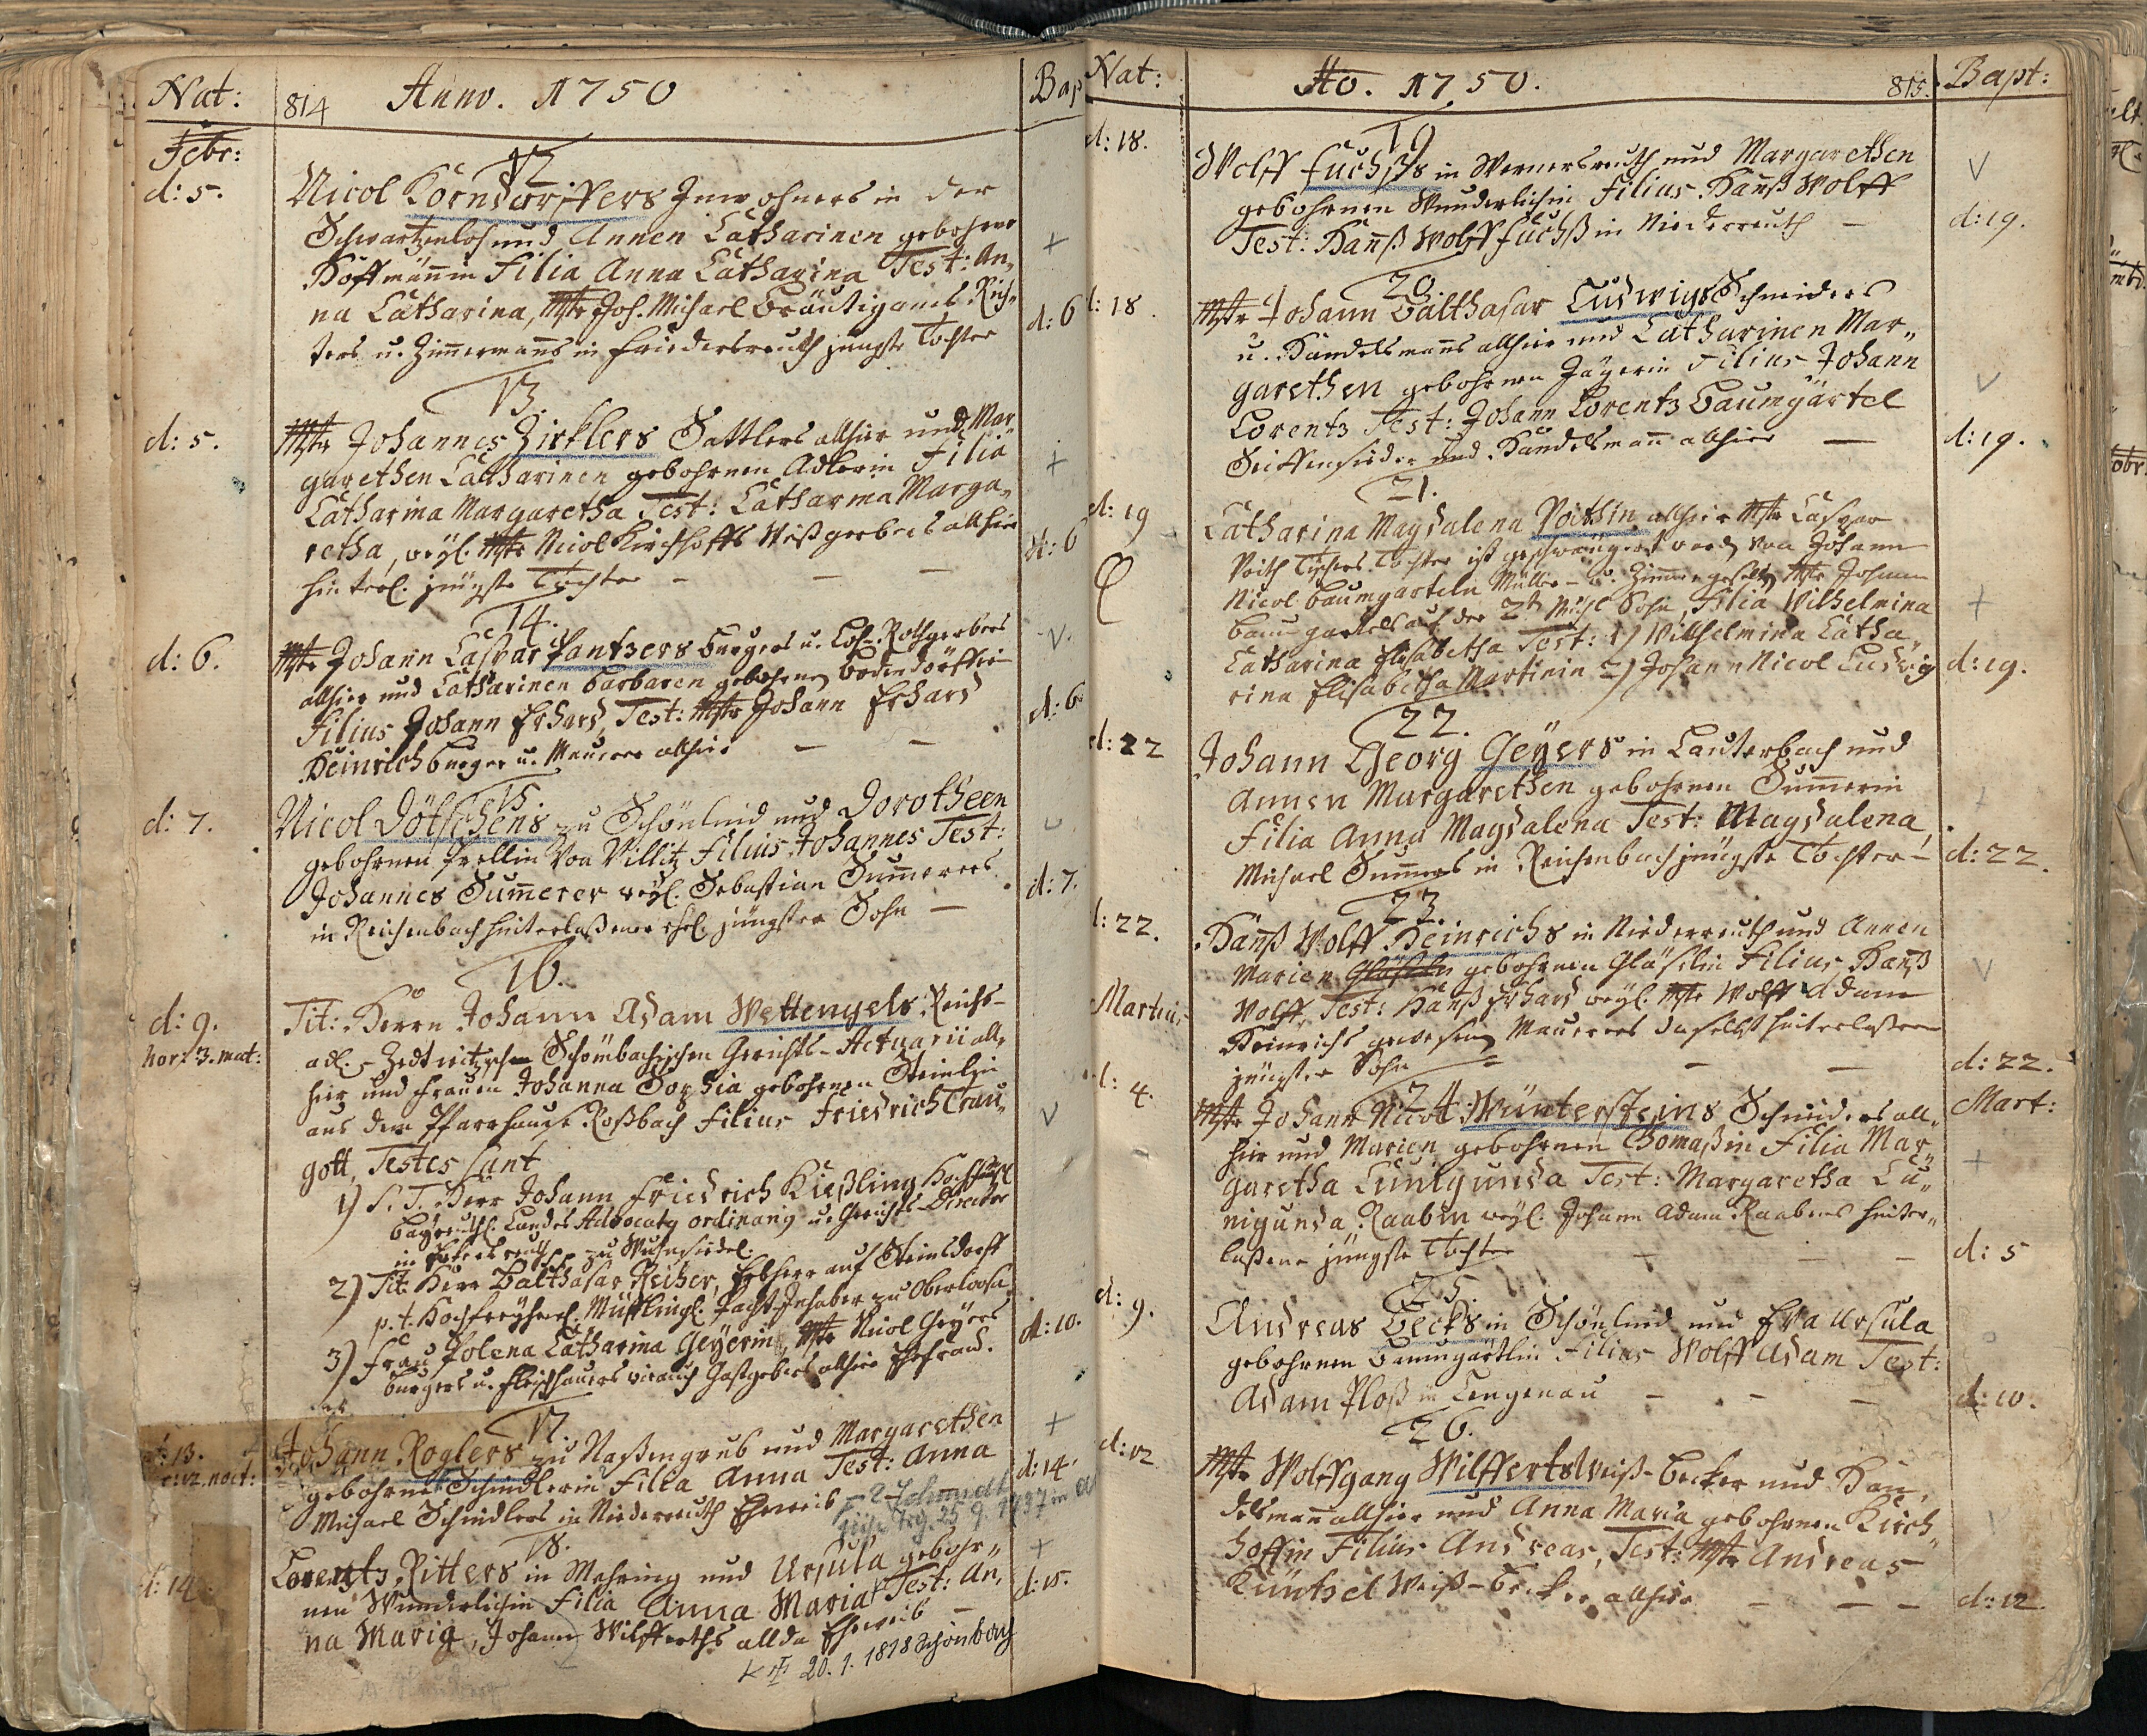 Nat:
814 Anno. 1750
Bap
Febr:
12
d: 5.
Nicol Körndörffers Inwohners in der
Schwartzenloh und Annen Catharinen gebohrne
Hoffmännin Filia Anna Catharina Test: An„
na Catharina, Mstr Joh. Michael Bräutigams Rich„
ters u. Zimmermanns in Friedersreuth jüngste Tochter
d: 6
13.
d: 5.
Mstr Johannes Zirklers Sattlers allhier und Mar„
garethen Catharinen gebohrnen Adlerin Filia
Catharina Margaretha Test: Catharina Marga„
retha, weyl. Mstr Nicol Kirchhoffs Weißgerbers allhier
hinterl. jüngste Tochter
d: 6
14.
d: 6.
Mstr Johann Caspar Pantzers Burgers u. Loh-Rothgerbers
allhier und Catharinen Barbaren gebohrnen Bodendörfferin
Filius Johann Erhard, Test: Mstr Johann Erhard
Heinrich Burger u. Maurer allhier
d: 6.
15.
d: 7.
Nicol Dötschens zu Schönlind und Dorotheen
gebohrnen Prellin von Villitz Filius Johannes Test:
Johannes Summerer weyl. Sebastian Summerers
in Reichenbach hinterlaßener ehel. jüngster Sohn
d: 7.
16.
d: 9.
hor: 3. mat:
Tit: Herrn Johann Adam Wettengels Reichs-
adl. Zedtwitzschen Schömbachischen Gerichts-Actuarii all„
hier und Frauen Johanna Sophia gebohrnen Steinlin
aus dem Pfarrhauße Roßbach Filius Friedrich Trau„
gott, Testes sunt
1) S. T. Herr Johann Friedrich Kießling Hochfürstl.
Bayreuthl. Landes Advocatq ordinariq u. Gerichts-Director
in zu Wunsiedel.
2) Tit. Herr Balthasar Reiher, Erbherr auf Steinsdorff
p. t. Hochfreyherrl. Müfflingl. Pacht-Inhaber zu Oberlosa
3) Frau Polena Catharina Geyerin, Mstr Nicol Geyers
Burgers u. Fleischhauers wie auch Gastgebers allhier Ehefrau.
d: 10.
17.
d: 13.
h: 12. noct:
Johann Roglers zu Naßengrub und Margarethen
gebohrnen Schindlerin Filia Anna Test: Anna
Michael Schindlers in Niederreuth Eheweib
d: 14.
18.
d: 14.
Lorentz Ritters in Mähring und Ursula gebohr„
nen Wunderlichin Filia Anna Maria Test: An„
na Maria, Johann Wilfferths allda Eheweib
d: 15.
20. 1. 1818 Schönbach
Nat:
Ao. 1750.
815.
Bapt:
19
d: 18.
Wolff Fuchßs in Wernersreuth und Margarethen
gebohrnen Wunderlichin Filius Hannß Wolff
Test: Hannß Wolff Fuchß in Niederreuth
d: 19.
20.
d: 18.
Mstr Johann Balthasar Ludwigs Schneiders
u. Handelsmanns allhier und Catharinen Mar„
garethen gebohrnen Jägerin Filius Johann
Lorentz Test: Johann Lorentz Baumgärtel
Seiffensieder und Handelsmann allhier
d: 19.
21.
d: 19
Catharina Magdalena Voithin allhier Mstr Caspar
Voith Tochter ist geschwängert word. von Johann
Nicol Baumgarteln Müller- u. Zimmergeselln Mstr Johann
Baumgartels auf der Mühl Sohn, Filia Wilhelmina
Catharina Elisabetha Test: 1) Wilhelmina Catha„
rina Elisabetha Martinin 2) Johann Nicol Ludwig
d: 19.
22.
d: 22
Johann Georg Geyers in Lauterbach und
Annen Margarethen gebohrnen Summerin
Filia Anna Magdalena Test: Magdalena,
Michael Summers in Reichenbach jüngste Tochter
d: 22.
23.
d: 22.
Hannß Wolff Heinrichs in Niederreuth und Annen
Marien gebohrnen Gläßelin Filius Hannß
Wolff, Test: Hannß Erhard weyl. Mstr Wolff Adam
Heinrichs gewesenen Maurers daselbst hinterlaßener
jüngster Sohn
d: 22.
Martius
Mart:
24
d: 4.
Mstr Johann Nicol Wüntersteins Schneiders all„
hier und Marien gebohrnen Thomaßin Filia Mar„
garetha Cunigunda Test: Margaretha Cu„
nigunda Raabin weyl. Johann Adam Raabens hinter„
laßene jüngste Tochter
d: 5
25.
d: 9.
Andreas Becks in Schönlind und Eva Ursula
gebohrnen Baumgärtlin Filius Wolff Adam Test:
Adam Ploß in Lengenau
d: 10.
26.
d: 12
Mstr Wolffgang Wilfferts Weiß-Becker und Han„
delsmann allhier und Anna Maria gebohrnen Kirch„
hoffin Filius Andreas, Test: Mstr Andreas
Küntzel Weiß-Becker allhier
d: 12.